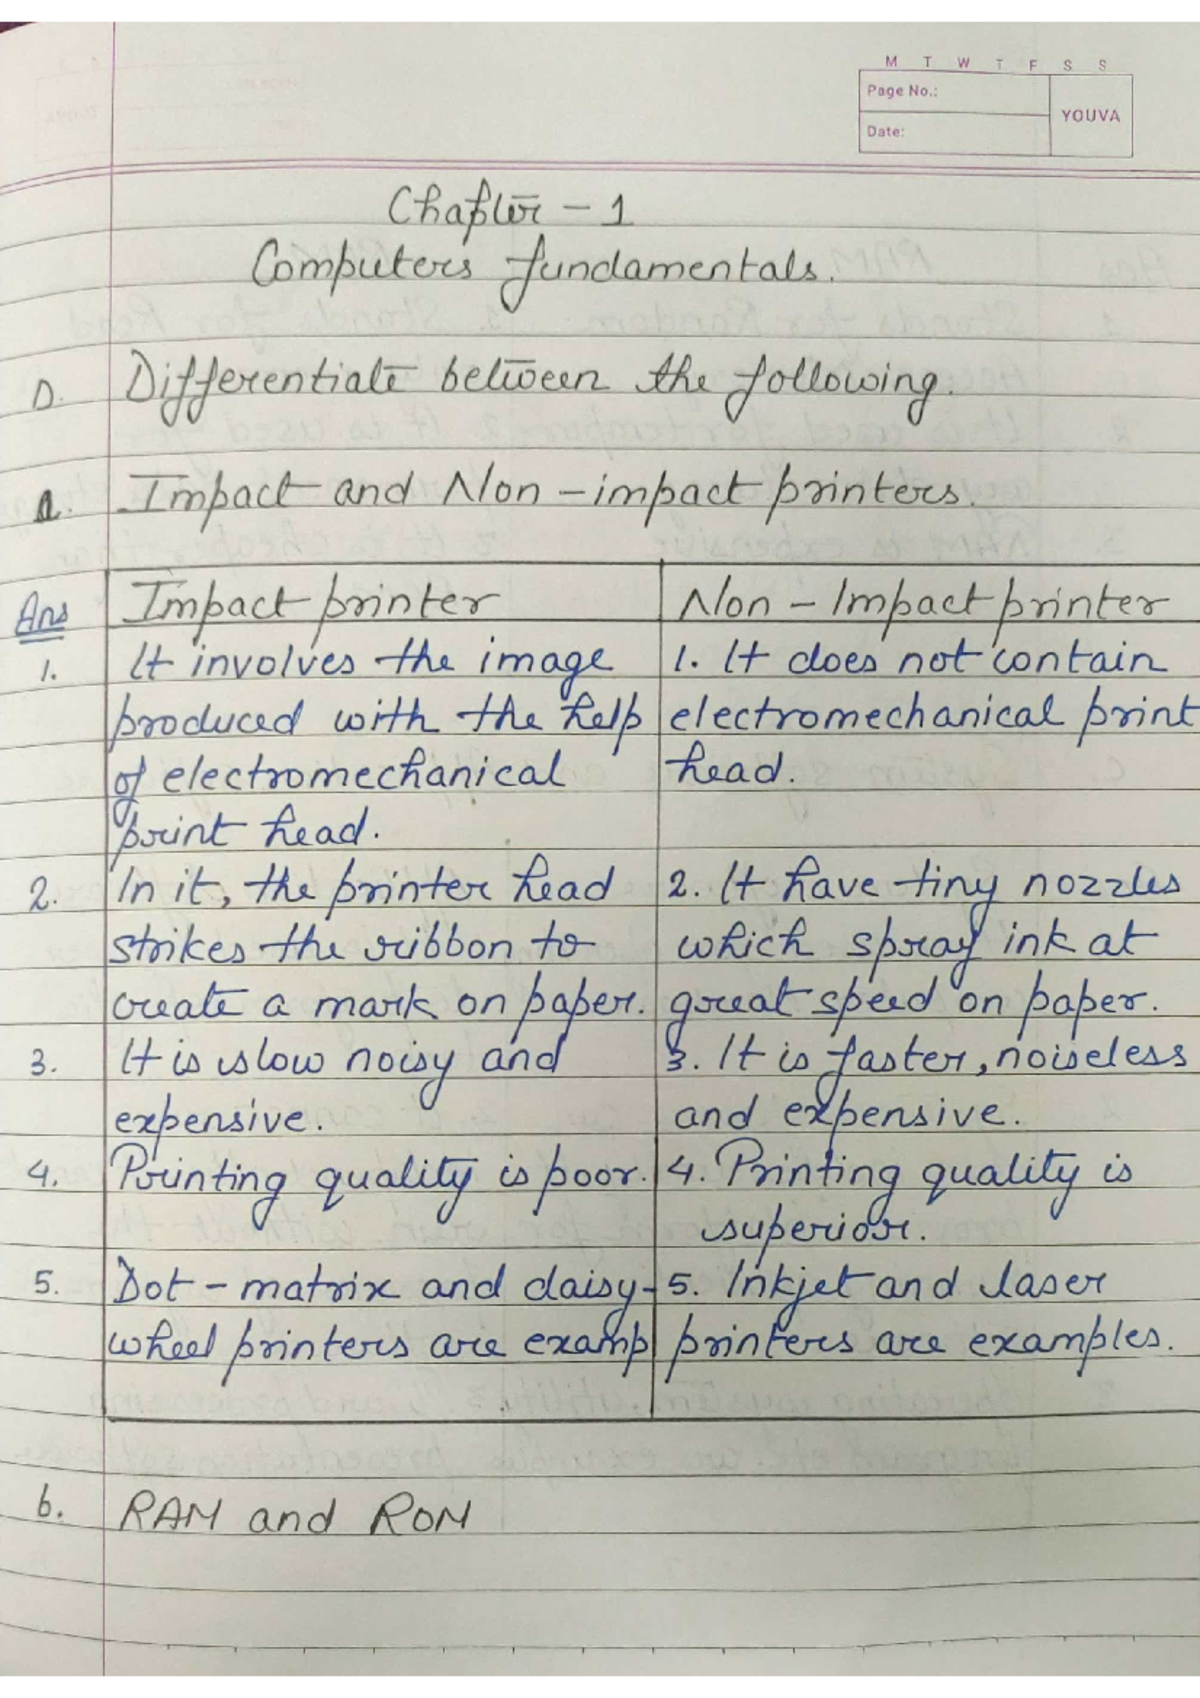 M T W T F S S
Page No.:
YOUVA
Date:
Chapter - 1
Computers fundamentals.
D. Differentiate between the following.
a. Impact and Non-impact printers.
Ans Impact printer Non-Impact printer
1. It involves the image 1. It does not contain
produced with the help electromechanical print
of electromechanical head.
print head.
2. In it, the printer head 2. It have tiny nozzles
strikes the ribbon to which spray ink at
create a mark on paper. great speed on paper.
3. It is slow noisy and 3. It is faster, noiseless
expensive. and expensive.
4. Printing quality is poor. 4. Printing quality is
superior.
5. Dot-matrix and daisy- 5. Inkjet and laser
wheel printers are examp printers are examples.
b. RAM and ROM